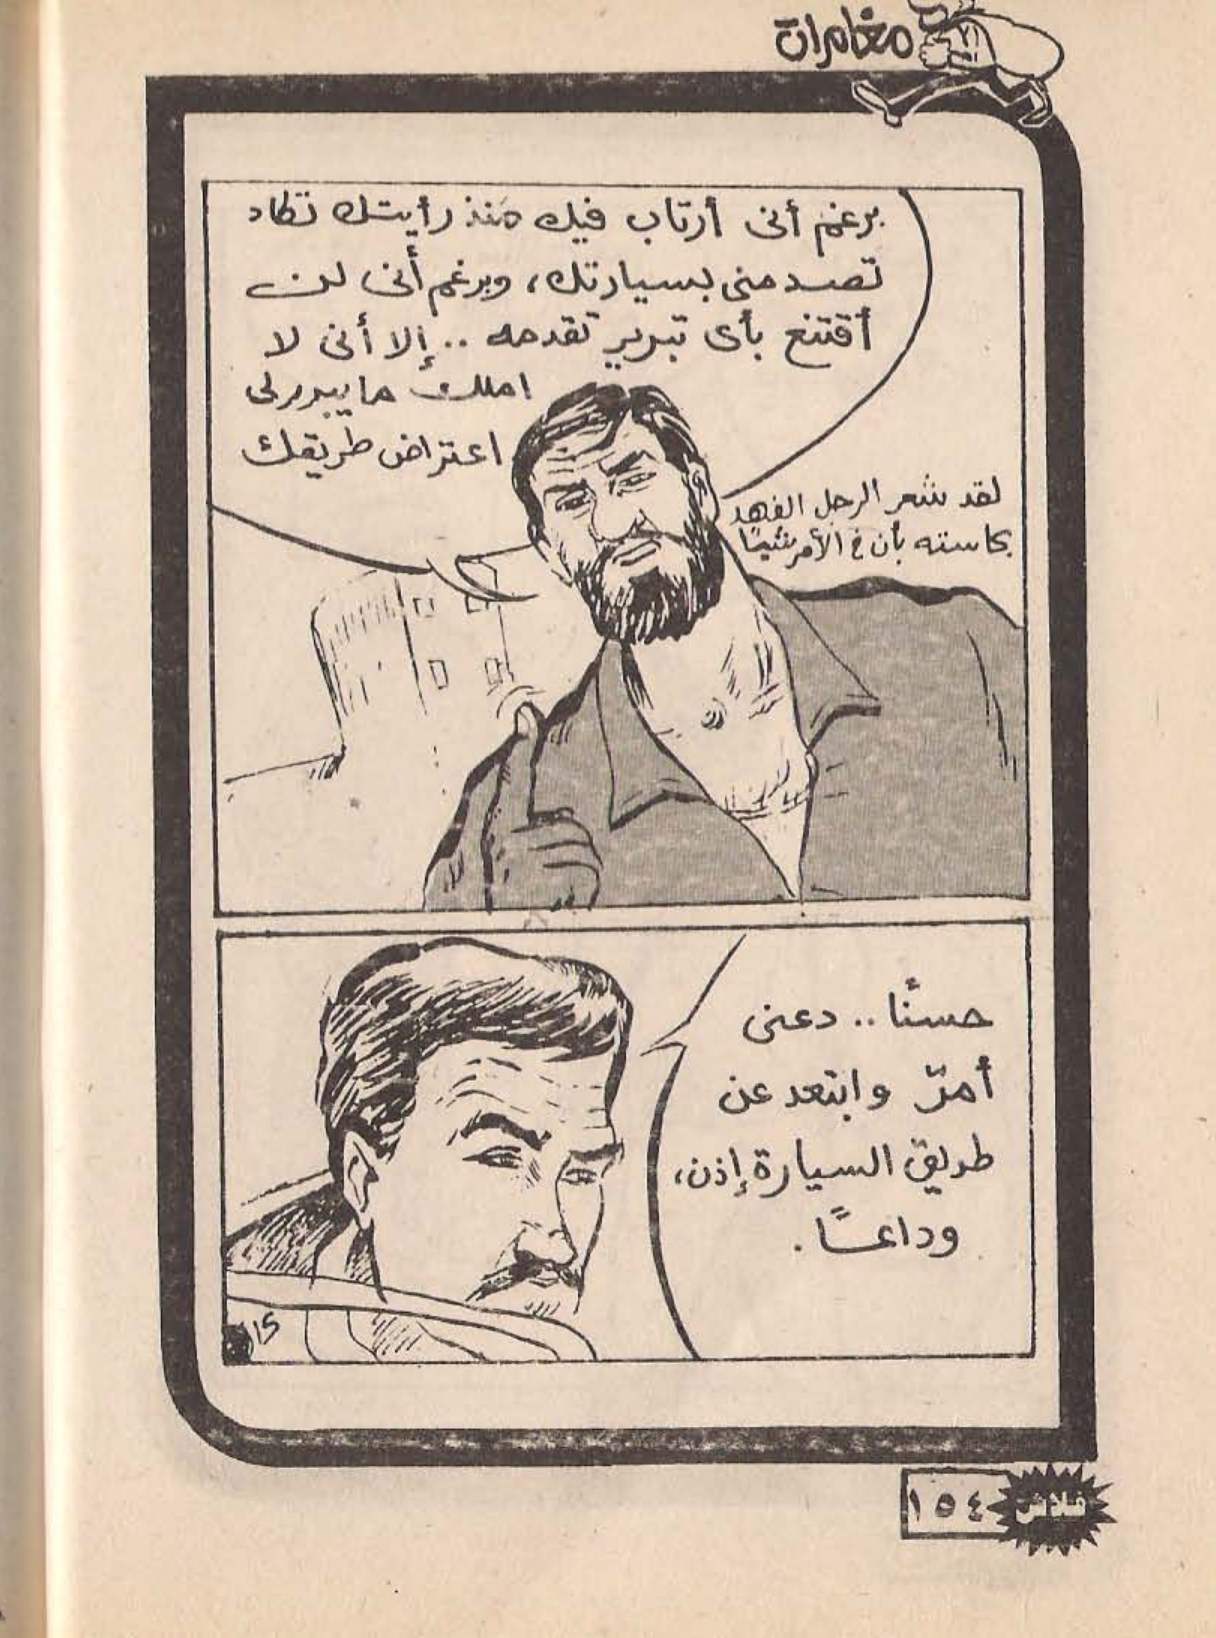 مغامرات
برغم أنى أرتاب فيك منذ رأيتك تكاد
تصدمنى بسيارتك، وبرغم أنى لن
أقتنع بأى تبرير تقدمه .. إلا أنى لا
املك ما يبرر لى
اعتراض طريقك
لقد شعر الرجل الفهد
بحاسته بأن فى الأمر شيئًا
حسنًا .. دعنى
أمرّ وابتعد عن
طريق السيارة إذن،
وداعــًا .
15
فلاش ١٥٤